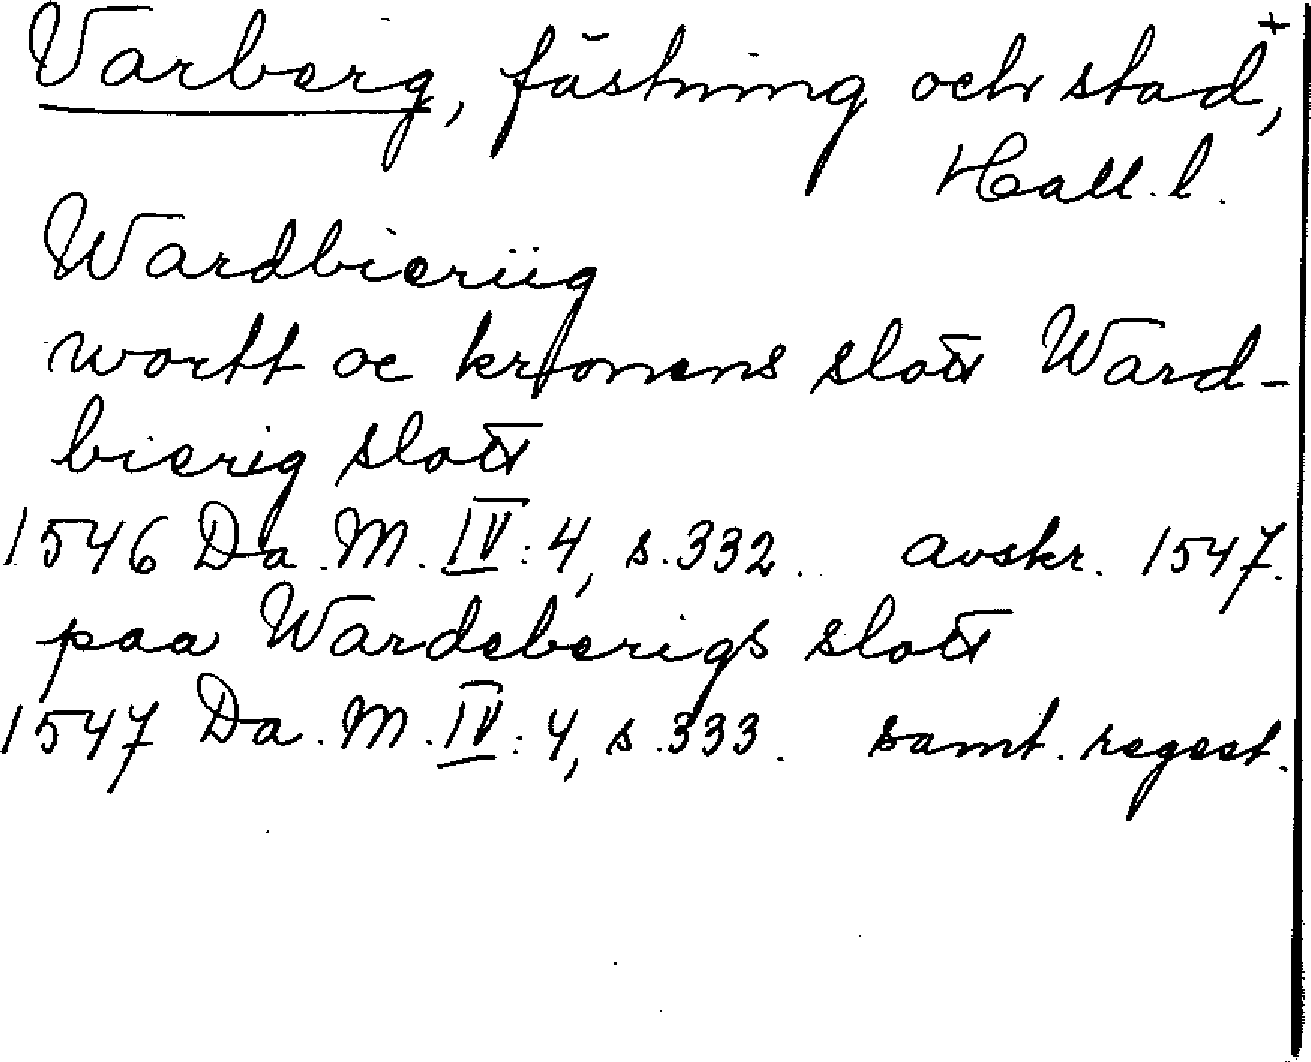 Varberg, fästning och stad,+
Hall. l.
Wardbieriig
wortt oc kronens slott Ward-
bierig slott
1546 Da. M. IV: 4, s. 332. avskr. 1547.
paa Wardeberigs slott
1547 Da. M. IV: 4, s. 333. samt. regest.